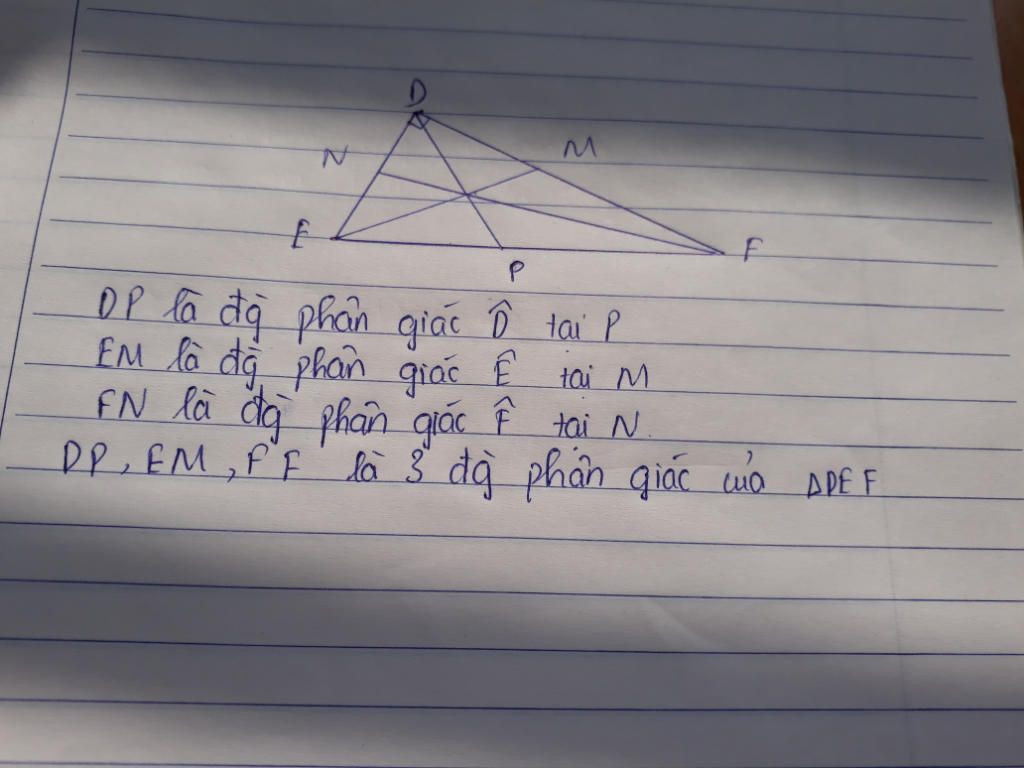 D
N
M
E
F
P
DP là đg̀ phân giác D̂ tại P
EM là đg̀ phân giác Ê tại M
FN là đg̀ phân giác F̂ tại N.
DP, EM, FF là 3 đg̀ phận giác của ΔDEF